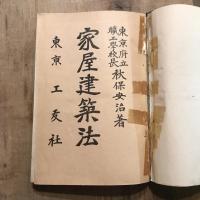 東京府立
職工学校長
秋保安治著
家屋建築法
東京 工友社